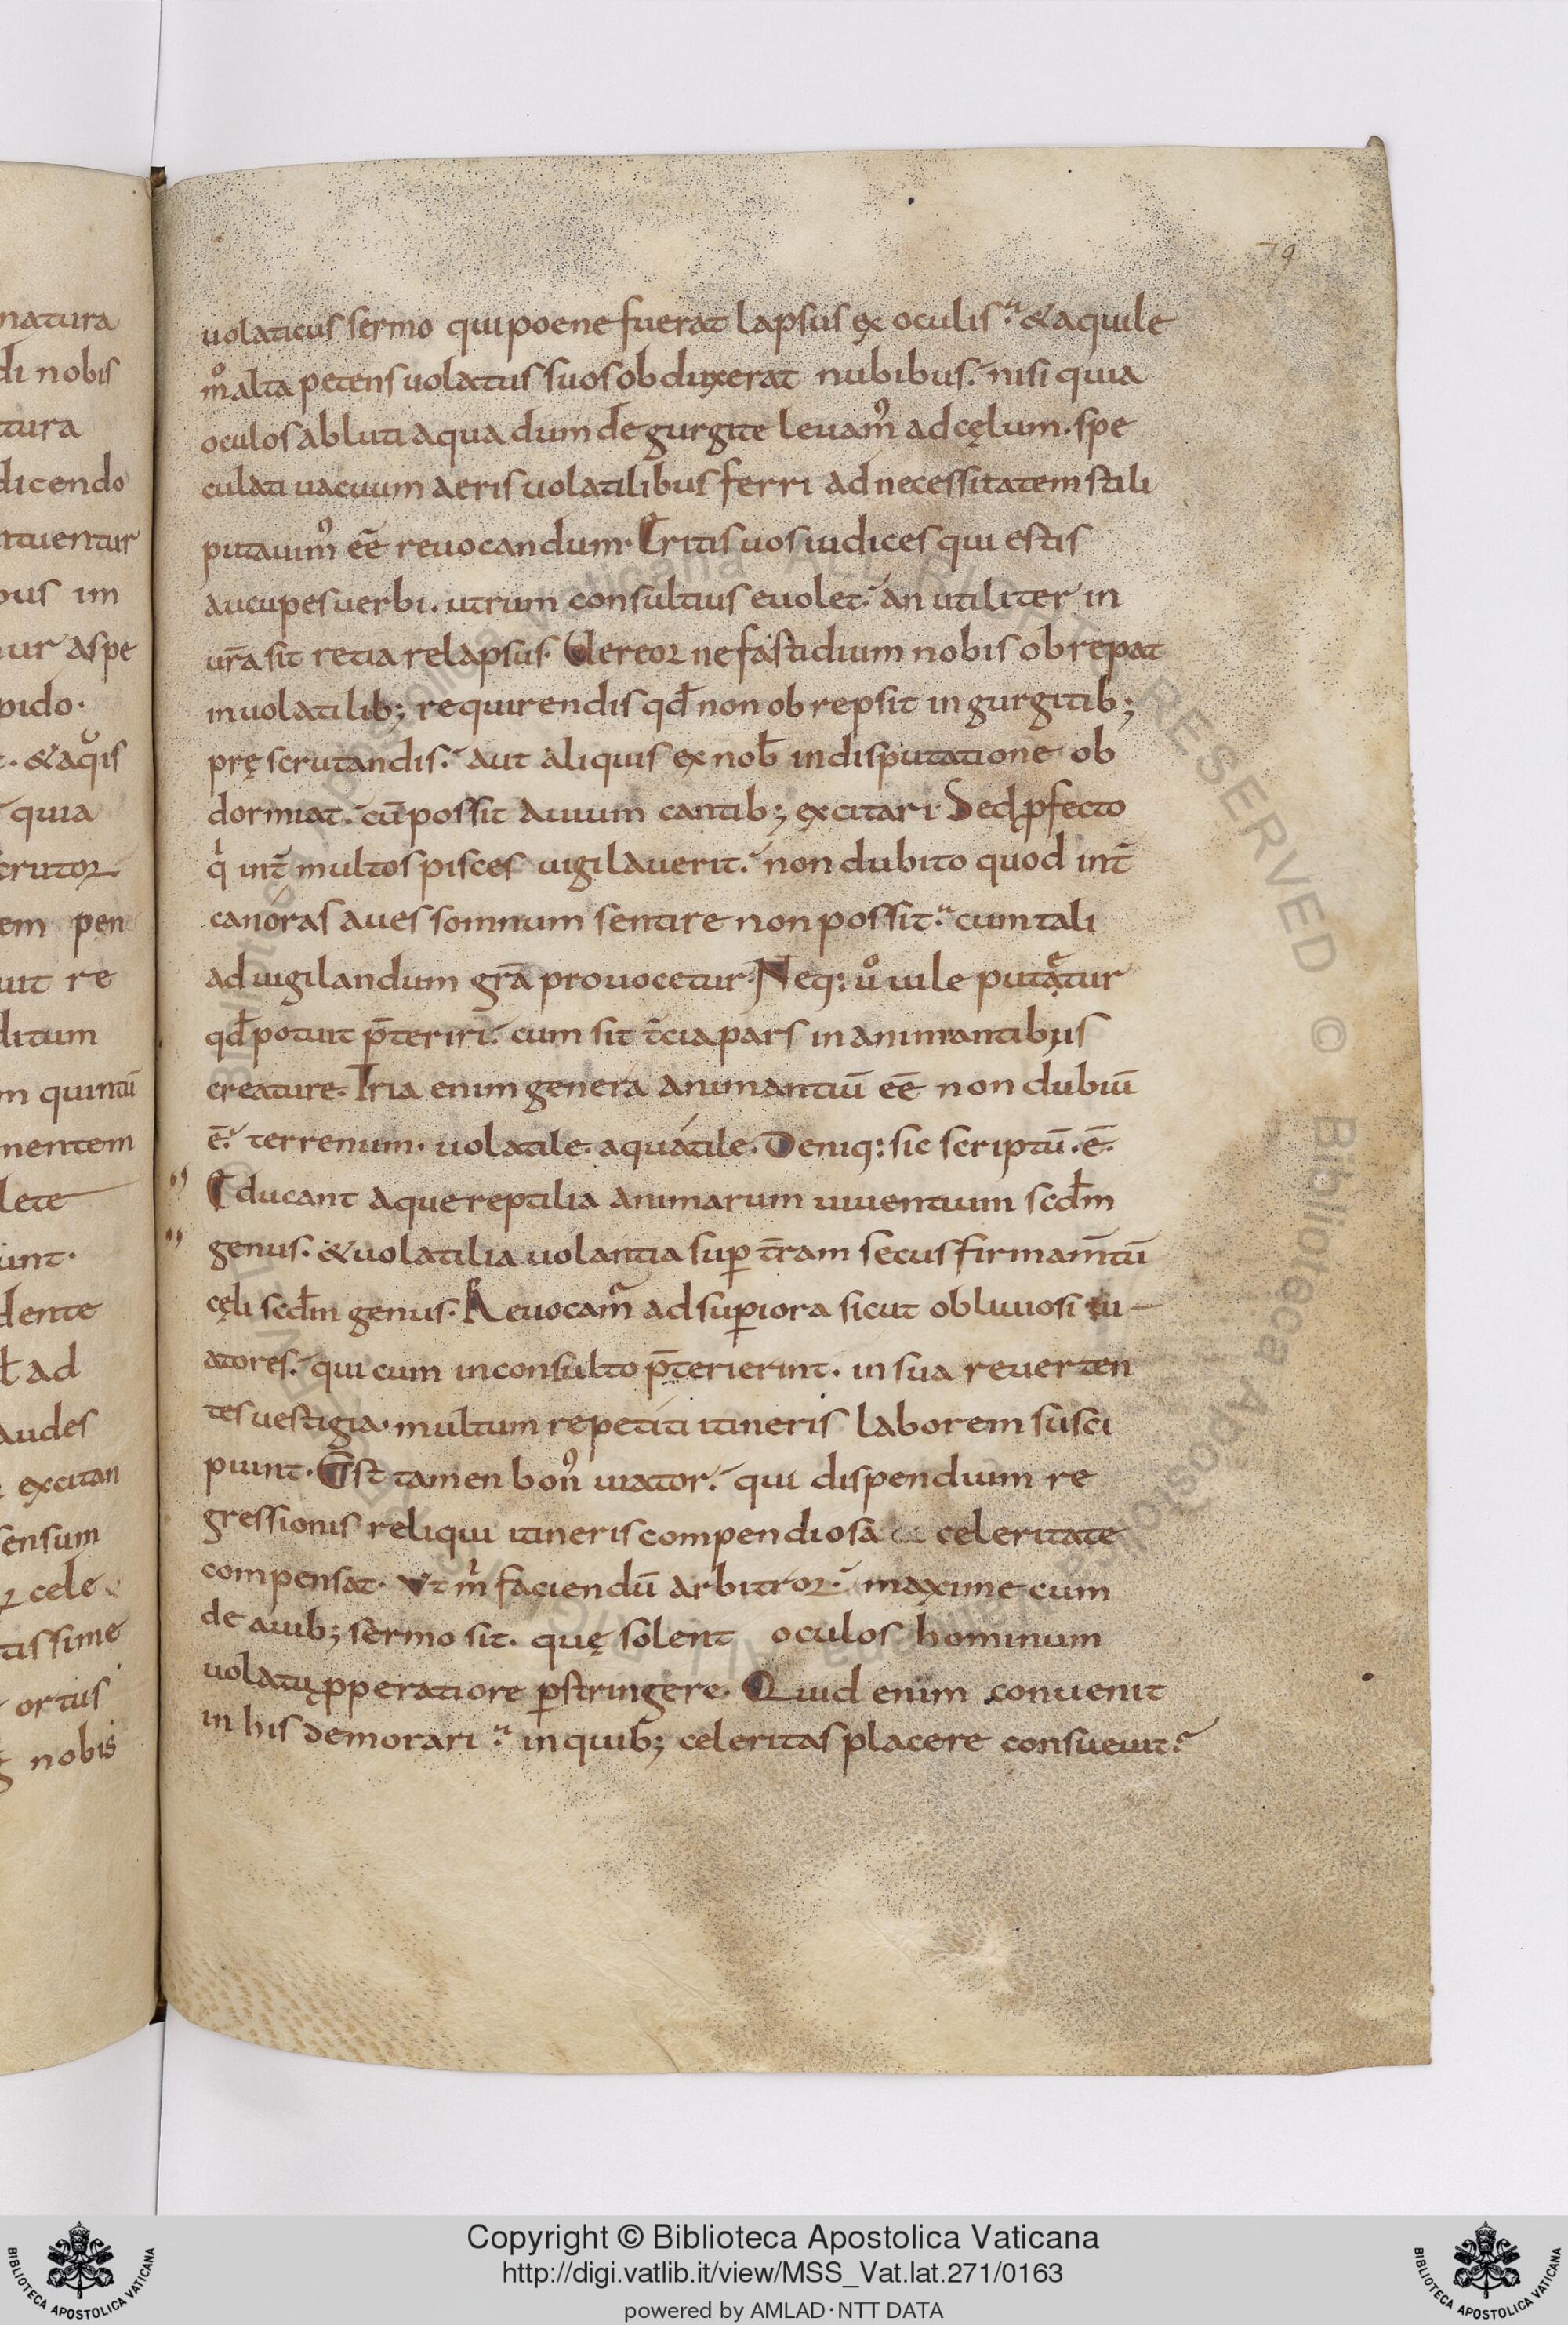 natura
di nobis
tura
dicendo
ntuentur
bus im
ur aspe
pido.
. &aqͦis
quia
crutor
em pen
uit re
ditum
m quintū
mentem
lete
unt.
dente
ł ad
audes
excitan
sensum
cele
tissime
ortus
nobis
79
uolaticus sermo qui poene fuerat lapsus ex oculis. & aquile
mͦ alta petens uolatus suos obduxerat nubibus. nisi quia
oculos abluti aqua dum de gurgite leuam᷒ ad cęlum. spe
culati uacuum aeris uolatilibus ferri ad necessitatem stili
putauim᷒ eē reuocandum. Eritis uos iudices qui estis
aucupes uerbi. utrum consultius euolet. an utiliter in
urā sit retia relapsus. Uereor ne fastidium nobis obrepat
in uolatilib; requirendis qđ non obrepsit in gurgitib;
pręscrutandis. aut aliquis ex nob̄ in disputatione ob
dormiat. cū possit auium cantib; excitari. Sed ꝓfecto
qͥ int̄ multos pisces uigilauerit. non dubito quod int̄
canoras aues somnum sentire non possit. cum tali
ad uigilandum grā prouocetur. Neq: uͦ uile putatur
qđ potuit p̄teriri. cum sit t̄cia pars in animantibus
creature. Tria enim genera animantiū eē non dubiū
ē. terrenum. uolatile. aquatile. Deniq: sic scriptū. ē.
" Educant aque reptilia animarum uiuentium scđm
" genus. & uolatilia uolantia suꝑ t̄ram secus firmam̄tū
cęli scđm genus. Reuocam᷒ ad suꝑiora sicut obliuiosi ui
atores. qui cum inconsulto p̄terierint. in sua reuerten
tes uestigia. multum repetiti itineris laborem susci
piunt. Est tamen bon᷒ uiator. qui dispendium re
gressionis reliqui itineris compendiosa celeritate
compensat. Ut mͥ faciendū arbitror. maxime cum
de auib; sermo sit. quę solent oculos hominum
uolatu ꝓperatiore ꝑstringere. Quid enim conuenit
in his demorari. in quib; celeritas placere consueuit.
Copyright © Biblioteca Apostolica Vaticana
http://digi.vatlib.it/view/MSS_Vat.lat.271/0163
powered by AMLAD·NTT DATA
BIBLIOTECA APOSTOLICA VATICANA
BIBLIOTECA APOSTOLICA VATICANA